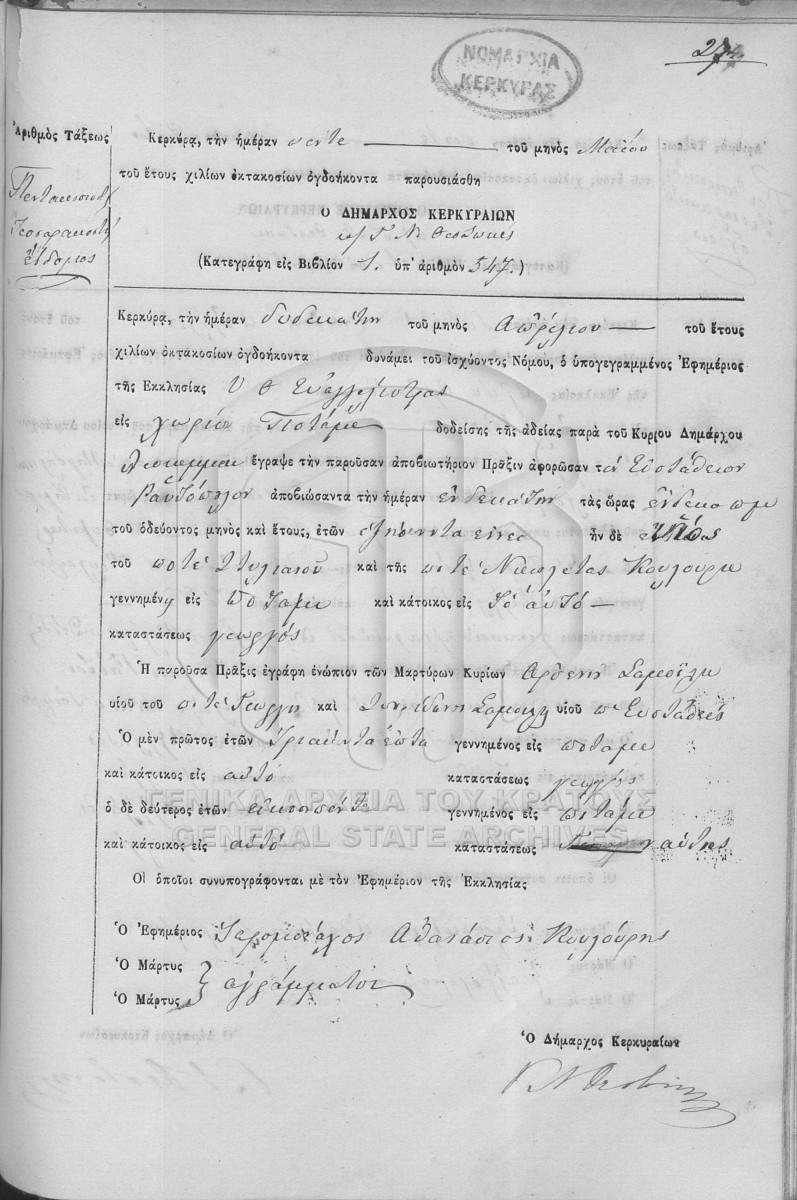 ΝΟΜΑΡΧΙΑ
ΚΕΡΚΥΡΑΣ
Ἀριθμὸς Τάξεως
Πεντακοσιοστή
Τεσσαρακοστή
ἑβδομος
Κερκύρᾳ, τὴν ἡμέραν πεντε τοῦ μηνὸς Μαΐου
τοῦ ἔτους χιλίων ὀκτακοσίων ὀγδοήκοντα παρουσιάσθη
Ὁ ΔΗΜΑΡΧΟΣ ΚΕΡΚΥΡΑΙΩΝ
Γ Ν Θεοτοκης
(Κατεγράφη εἰς Βιβλίον 1. ὑπ' ἀριθμὸν 547.)
Κερκύρᾳ, τὴν ἡμέραν δυδεκατην τοῦ μηνὸς Απριλιου τοῦ ἔτους
χιλίων ὀκτακοσίων ὀγδοήκοντα δυνάμει τοῦ ἰσχύοντος Νόμου, ὁ ὑπογεγραμμένος Ἐφημέριος
τῆς Ἐκκλησίας Υ Θ Εὐαγγελιστρας
εἰς χωρίο Ποταμῦ δοδείσης τῆς ἀδείας παρὰ τοῦ Κυρίου Δημάρχου
ἔγραψε τὴν παροῦσαν ἀποβιωτήριον Πρᾶξιν ἀφορῶσαν τὸν Εὐστάθειον
Ραυτόπολον ἀποβιώσαντα τὴν ἡμέραν ἑνδεκατην τὰς ὥρας ἕνδεκα πμ
τοῦ ὁδεύοντος μηνὸς καὶ ἔτους, ἐτῶν ἑξήκοντα ἦν δὲ υἱὸς
τοῦ ποτὲ Στυλιανοῦ καὶ τῆς ποτὲ Νικολετας Κουλουρη
γεννημένη εἰς Ποταμῦ καὶ κάτοικος εἰς τὸ αὐτό
καταστάσεως γεωργός
Ἡ παροῦσα Πρᾶξις ἐγράφη ἐνώπιον τῶν Μαρτύρων Κυρίων Αρσενη Σαμοιλη
υἱοῦ τοῦ ποτὲ Γεωργη καὶ Σπυριδων Σαμοιλη υἱοῦ π Ευσταθιος
Ὁ μὲν πρῶτος ἐτῶν τριακοντα επτα γεννημένος εἰς ποταμω
καὶ κάτοικος εἰς αὐτό καταστάσεως γεωργός
ὁ δὲ δεύτερος ἐτῶν εικοσιπεντε γεννημένος εἰς ποταμω
καὶ κάτοικος εἰς αὐτό καταστάσεως ναύτης
Οἱ ὁποῖοι συνυπογράφονται μὲ τὸν Ἐφημέριον τῆς Ἐκκλησίας
Ὁ Ἐφημέριος Ιερομόναχος Αθανάσιος Κουλούρης
Ὁ Μάρτυς
αγράμματοι
Ὁ Μάρτυς
Ὁ Δήμαρχος Κερκυραίων
Γ Ν Θεοτοκης
ΓΕΝΙΚΑ ΑΡΧΕΙΑ ΤΟΥ ΚΡΑΤΟΥΣ
GENERAL STATE ARCHIVES